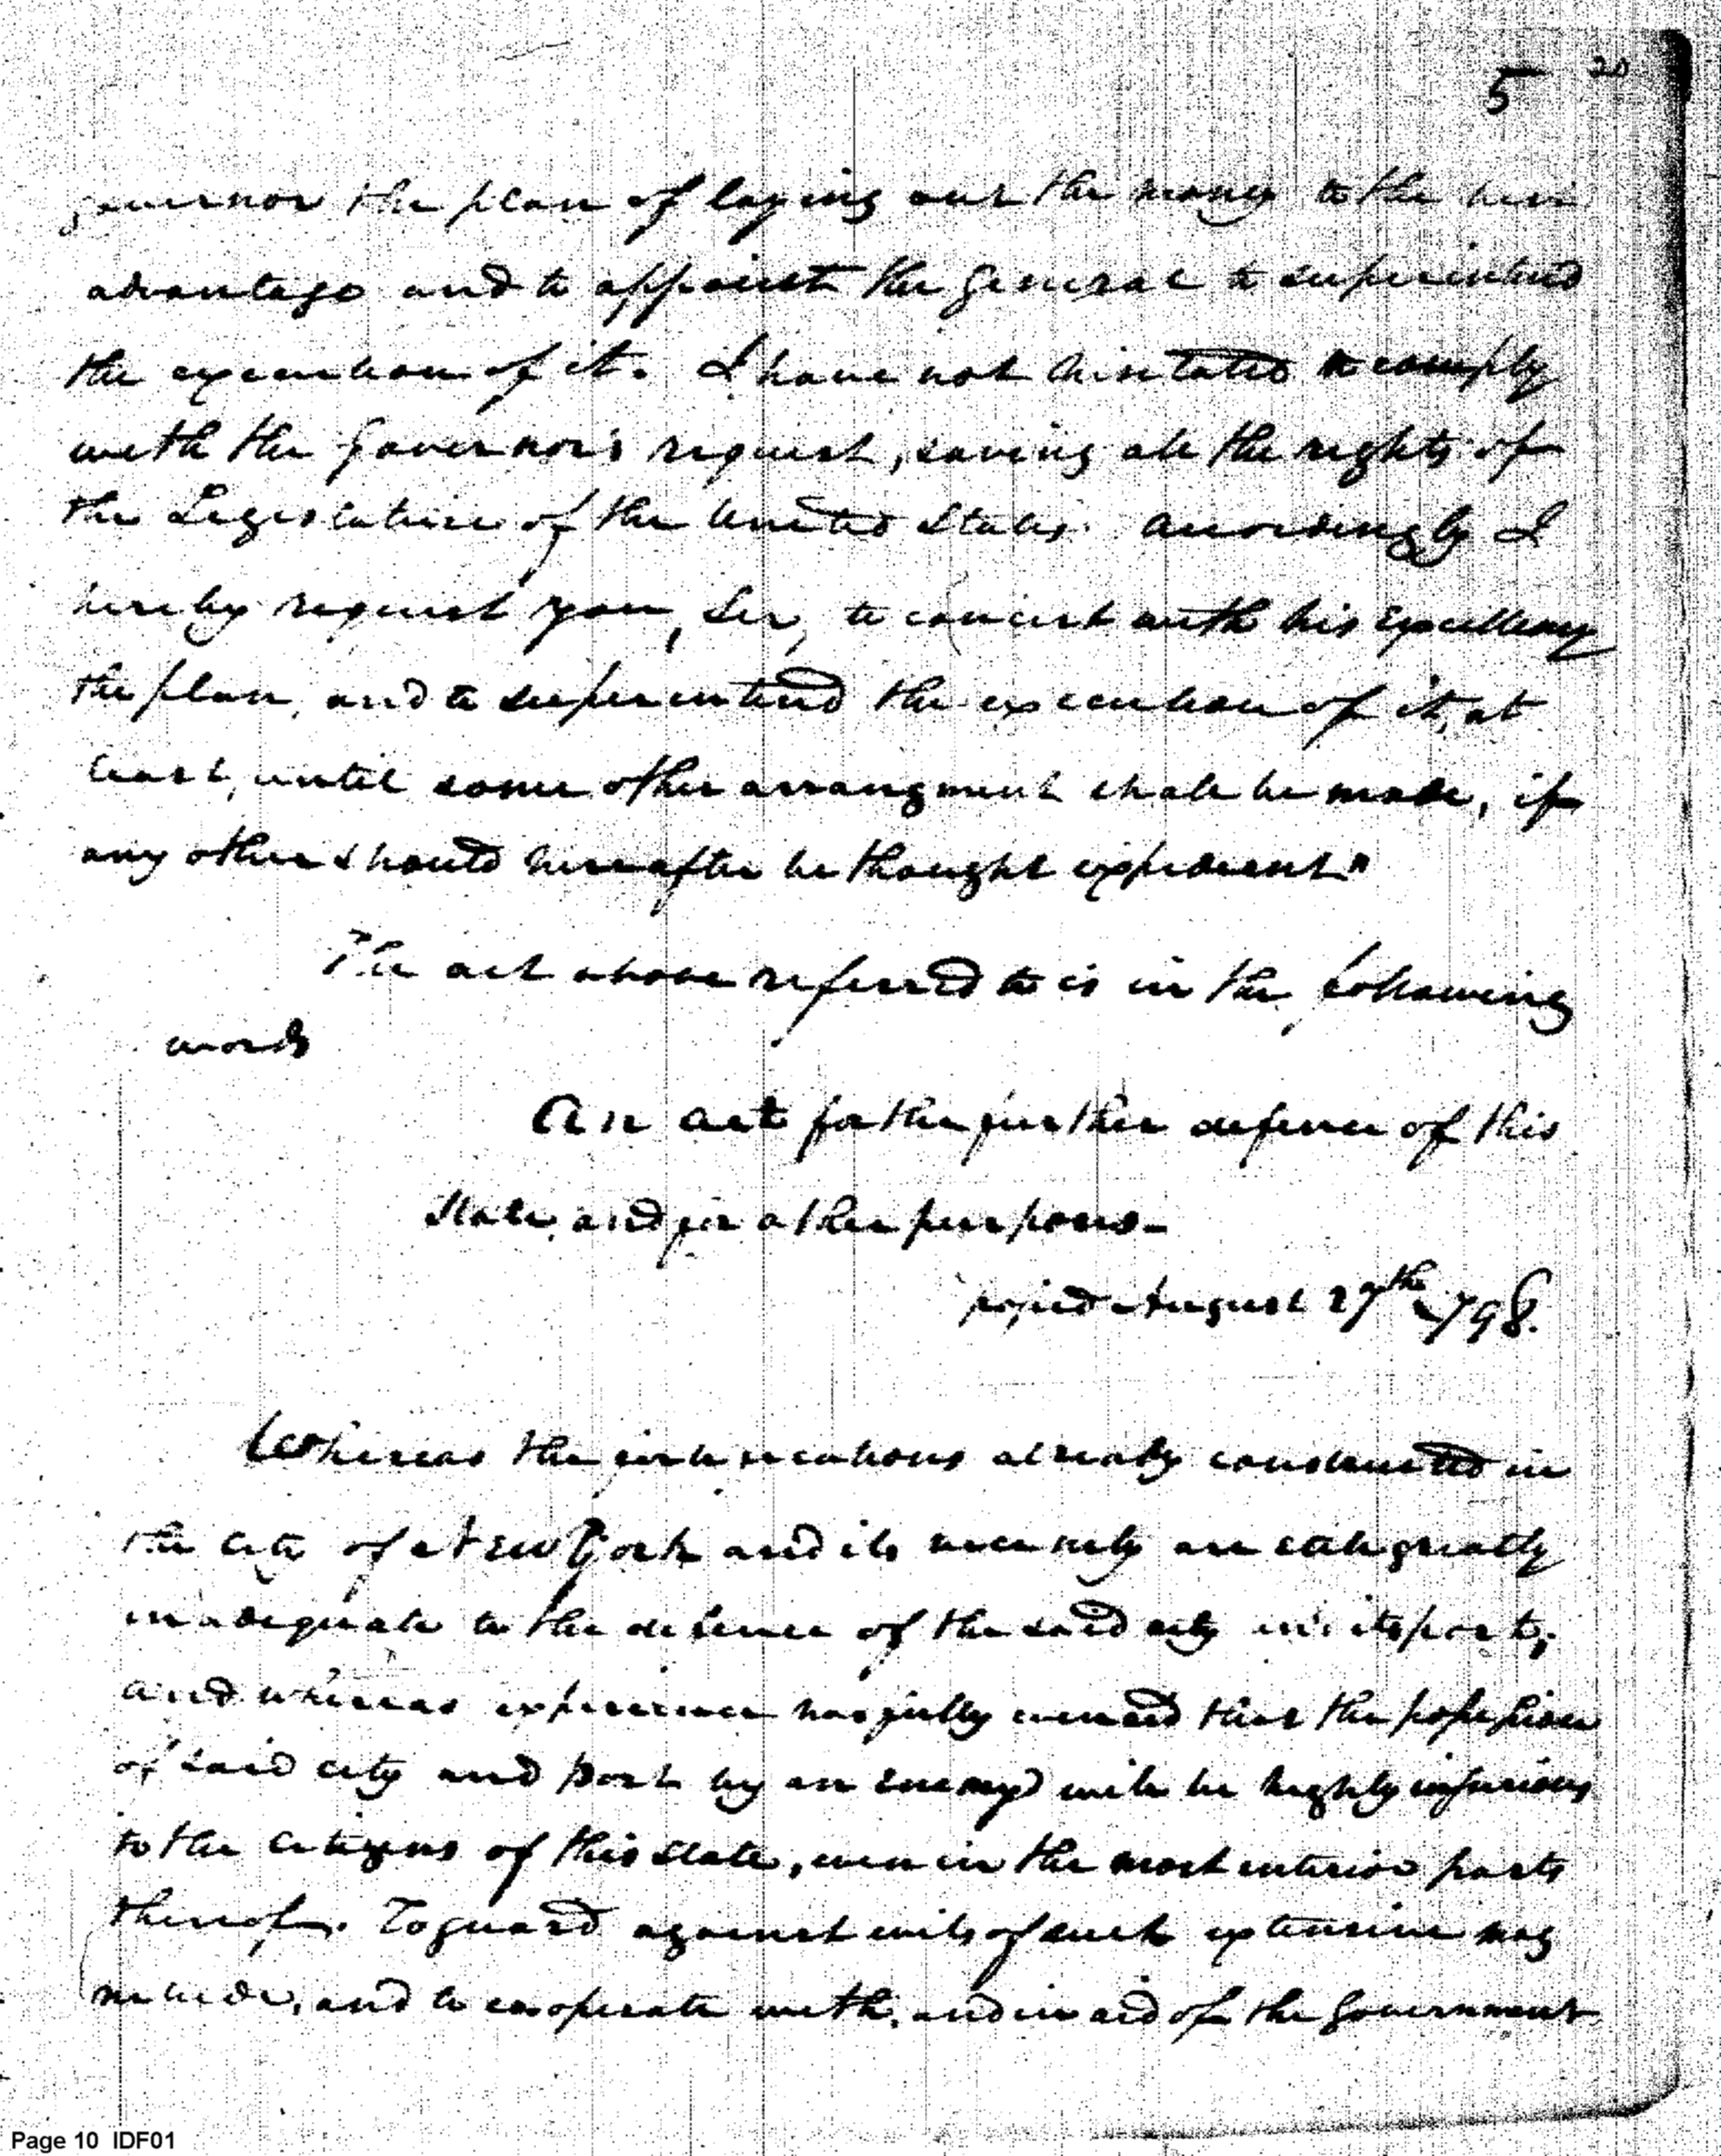 5 20
governor the plan of laying out the money to the best
advantage and to appoint the General to superintend
the execution of it. I have not hesitated to comply
with the Governor's request, saving all the rights of
the Legislature of the United States. Accordingly I
hereby request you, Sir, to concert with his Excellency
the plan, and to superintend the execution of it, at
least, until some other arrangment shall be made, if
any other should hereafter be thought expedient"
The act above referred to is in the following
words
An act for the further defence of this
State, and for other purposes—
August 27th 1798.
Whereas the fortifications already constructed in
the city of New York and its vicinity are still greatly
inadequate to the defence of the said city its port;
and whereas experience has fully evinced that the possession
of said city and port by an enemy will be highly injurious
to the citizens of this State, even in the most interior parts
thereof. To guard against evils of such extensive mag
nitude, and to cooperate with, and in aid of the Government
Page 10 IDF01